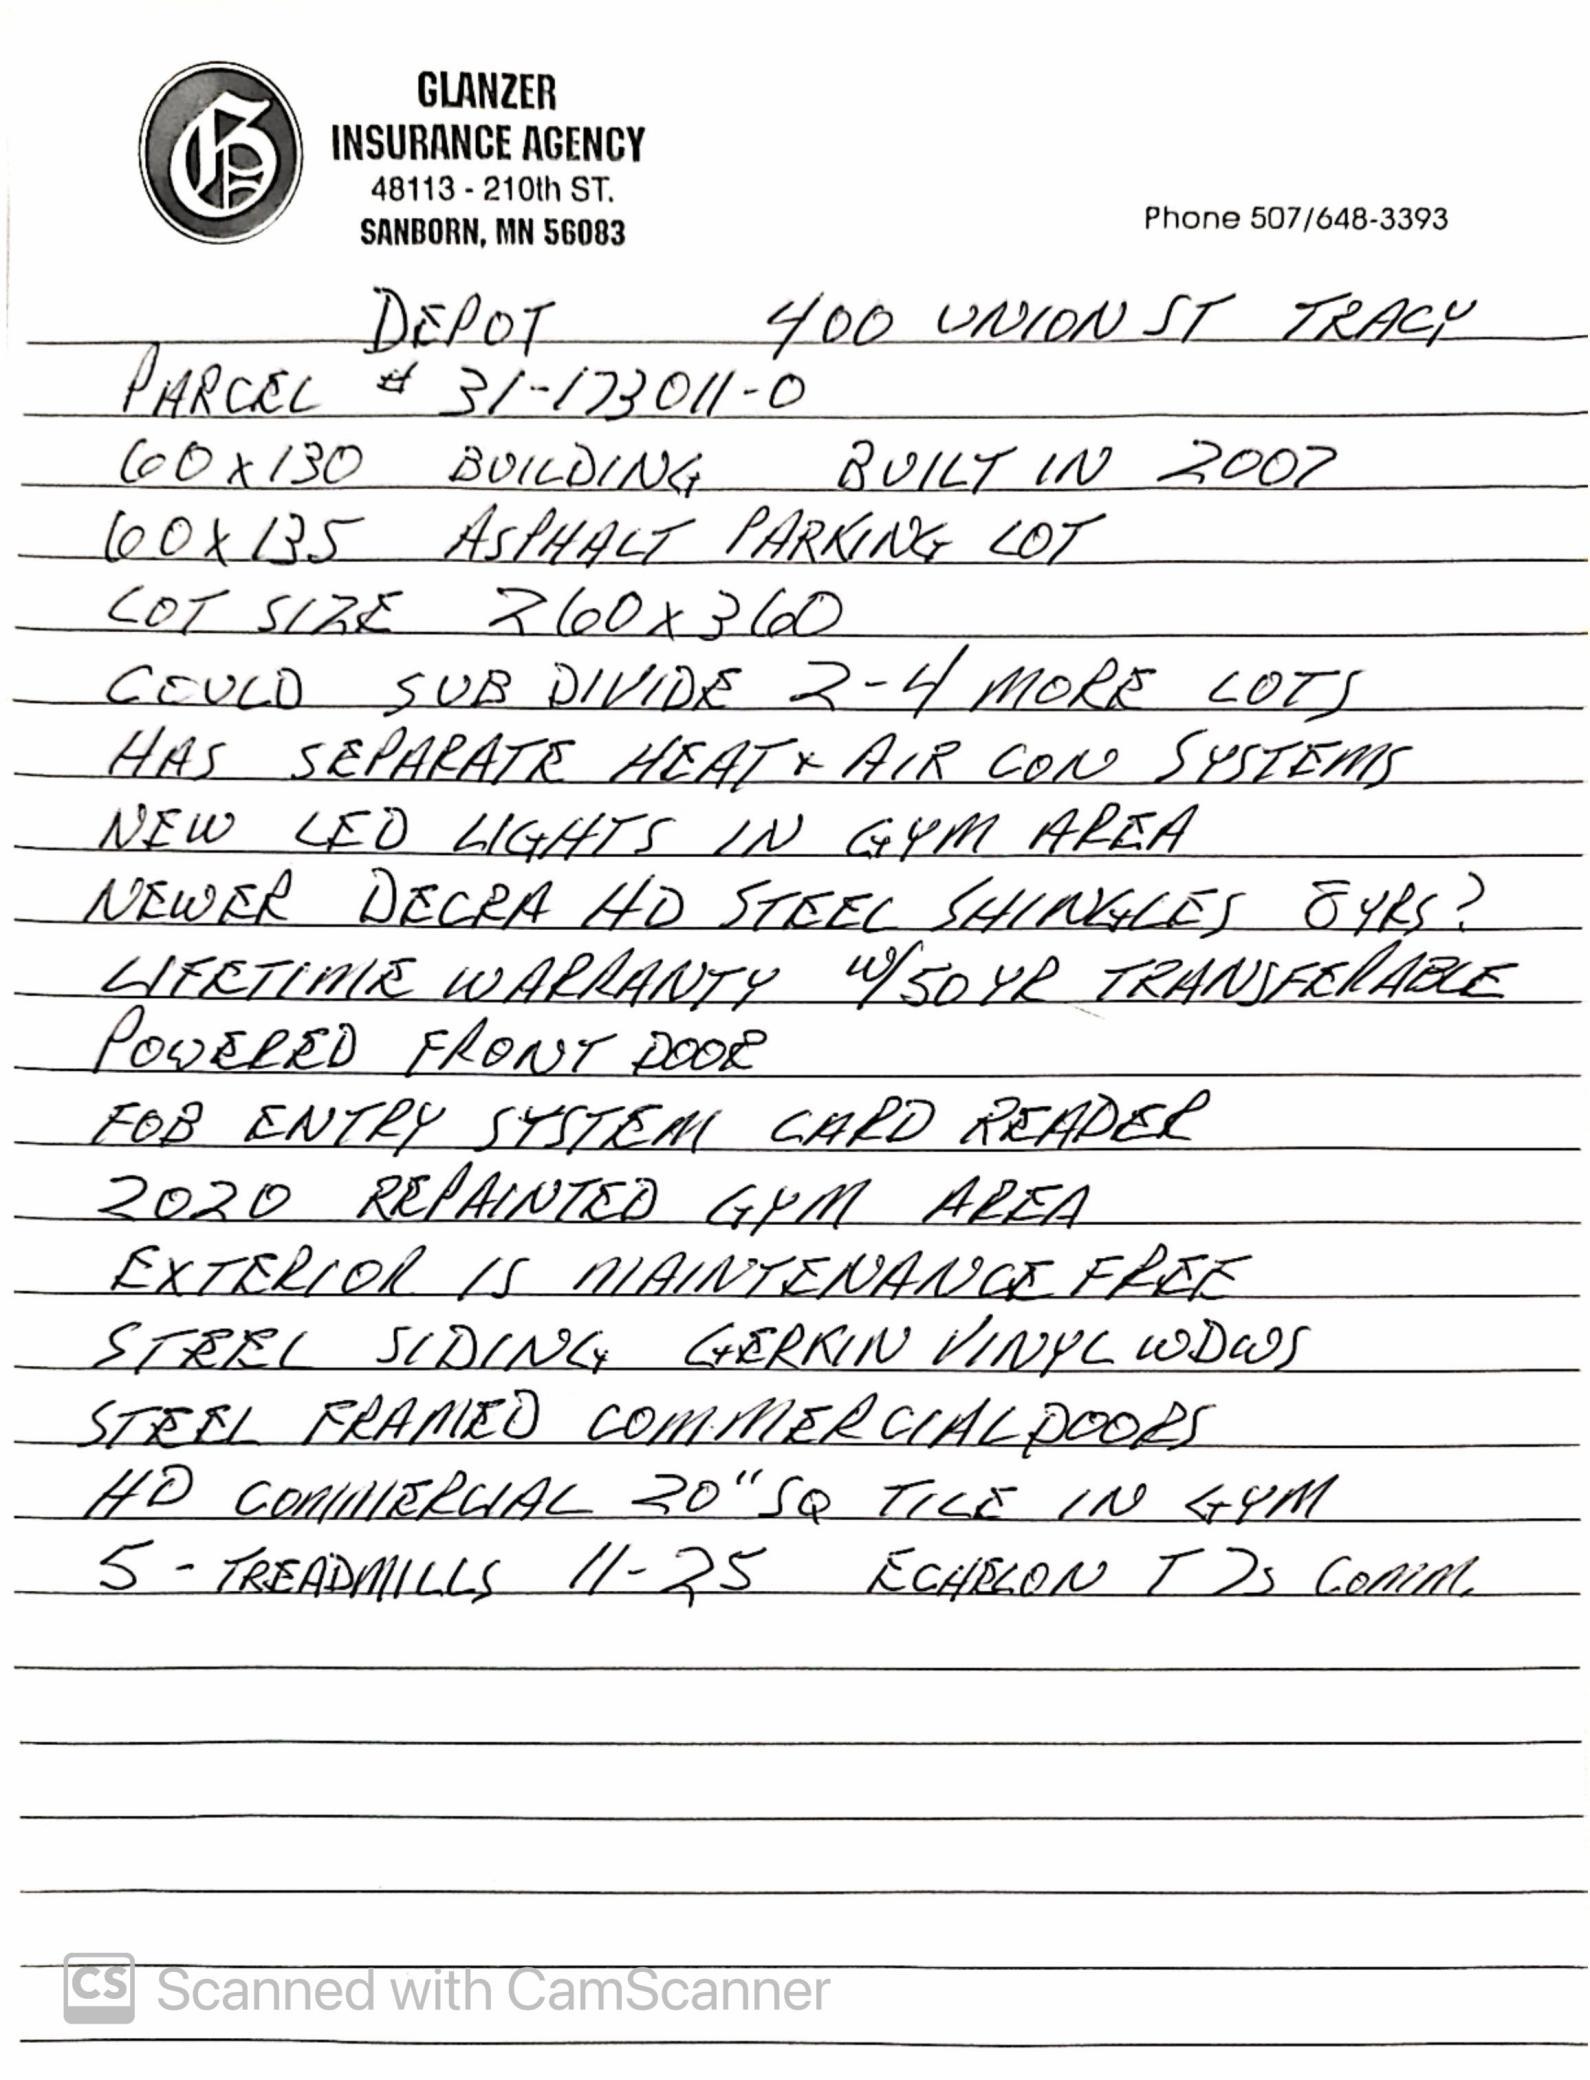 GLANZER
INSURANCE AGENCY
48113 - 210th ST.
SANBORN, MN 56083
Phone 507/648-3393
DEPOT 400 UNION ST TRACY
PARCEL # 31-173011-0
60x130 BUILDING BUILT IN 2007
60x135 ASPHALT PARKING LOT
LOT SIZE 260x360
COULD SUB DIVIDE 2-4 MORE LOTS
HAS SEPARATE HEAT & AIR CON SYSTEMS
NEW LED LIGHTS IN GYM AREA
NEWER DECRA HD STEEL SHINGLES 8YRS?
LIFETIME WARRANTY W/50 YR TRANSFERABLE
POWERED FRONT DOOR
FOB ENTRY SYSTEM CARD READER
2020 REPAINTED GYM AREA
EXTERIOR IS MAINTENANCE FREE
STEEL SIDING GERKIN VINYL WDWS
STEEL FRAMED COMMERCIAL DOORS
HD COMMERCIAL 20" SQ TILE IN GYM
5 - TREADMILLS 11-25 ECHELON T7s COMM.
CS Scanned with CamScanner